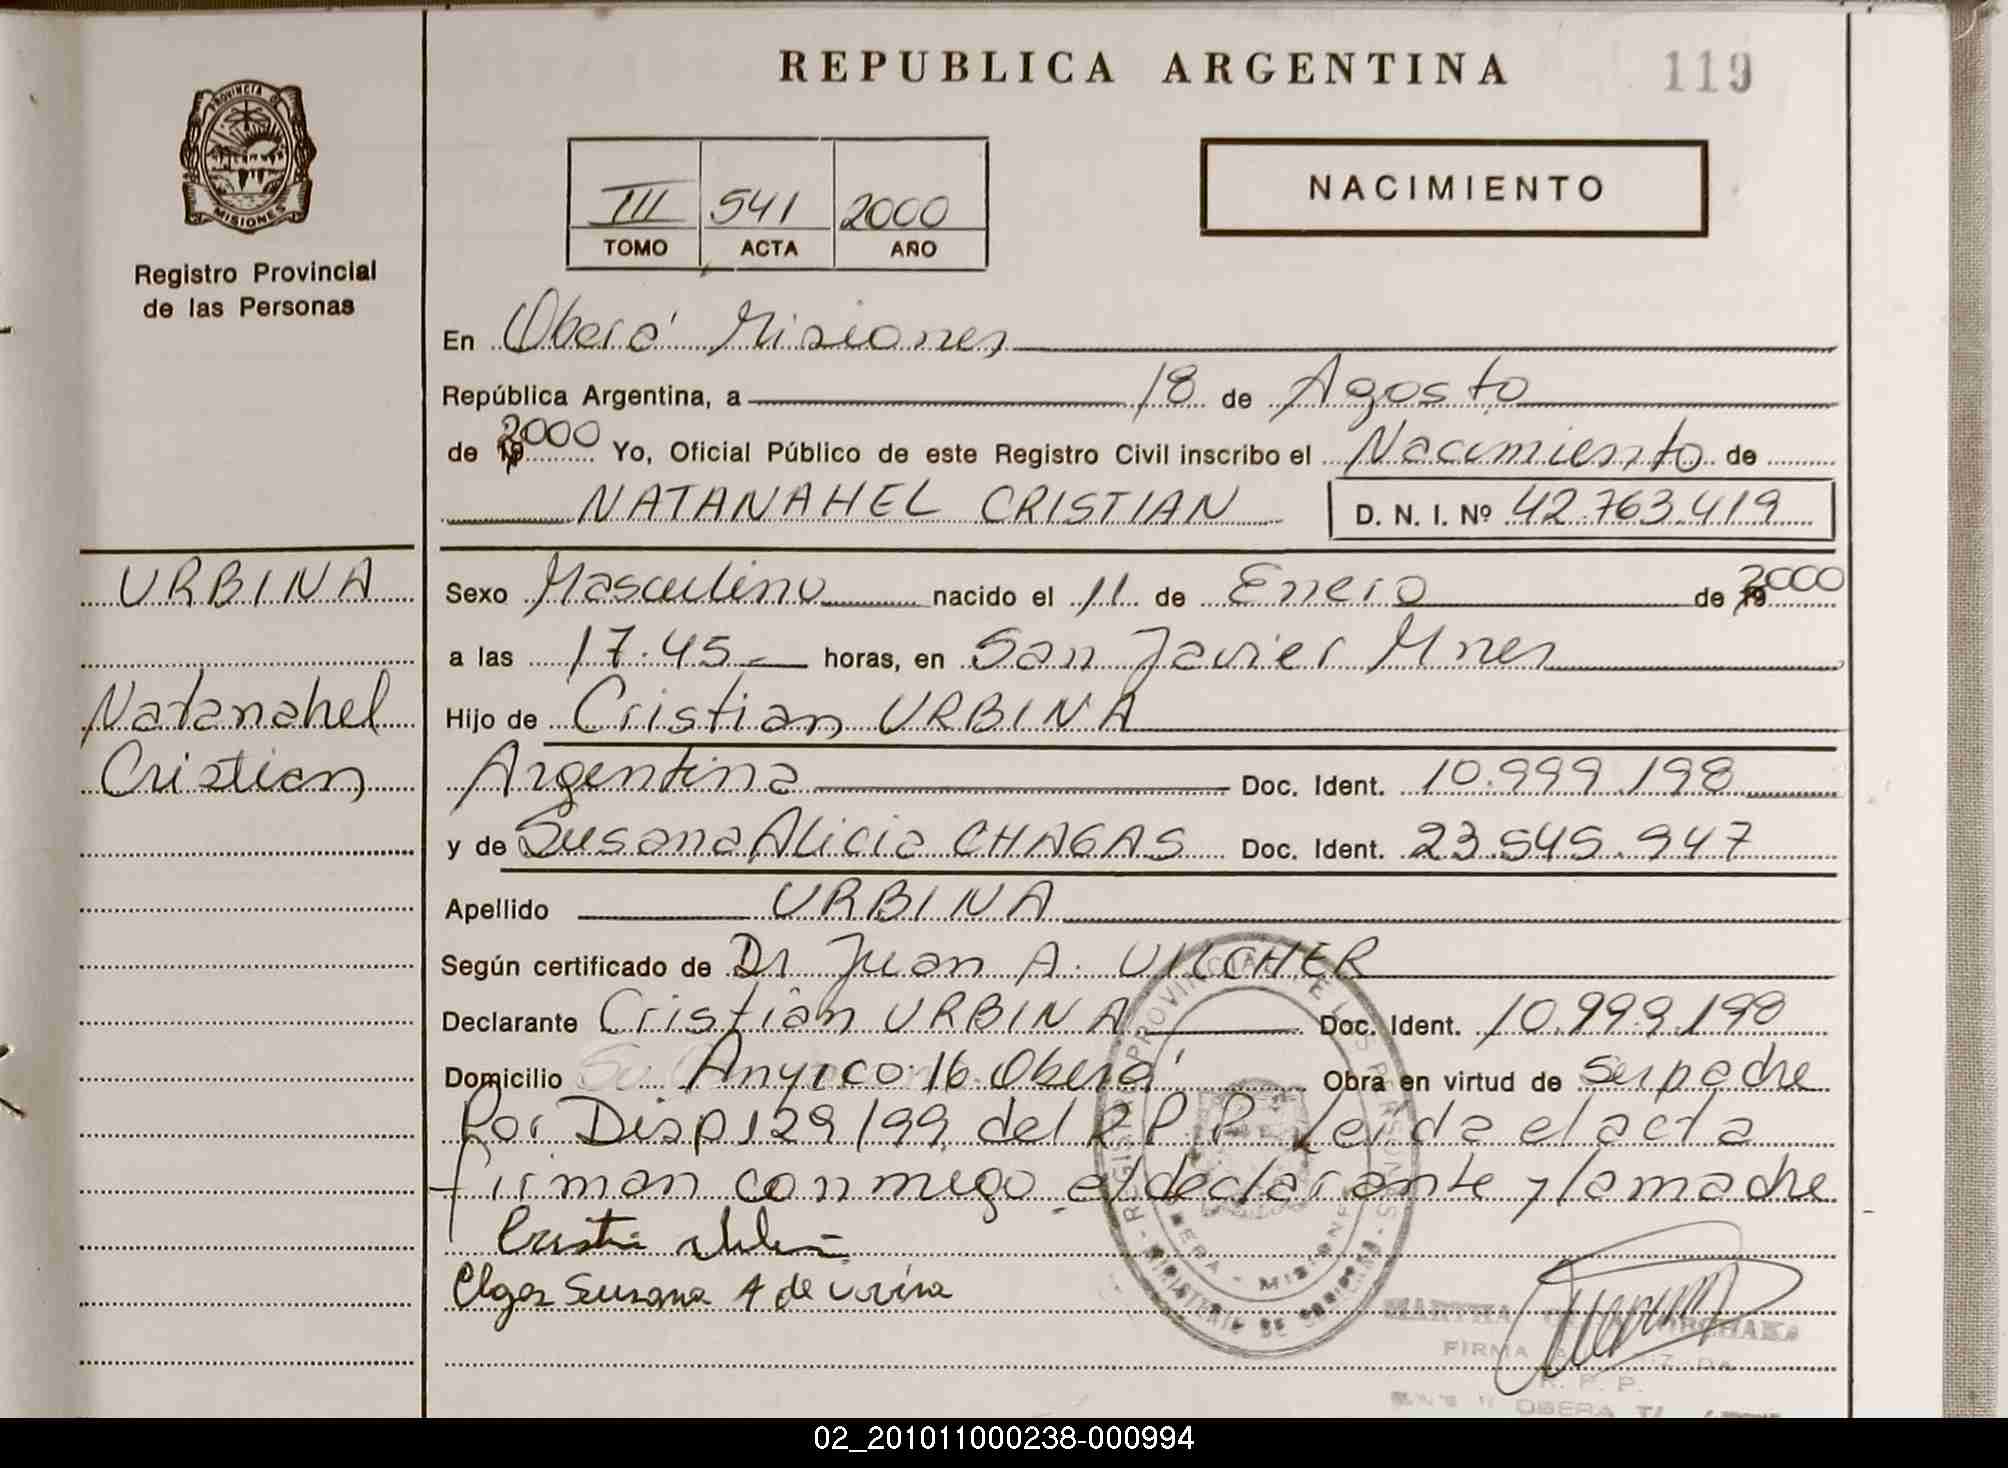 REPUBLICA ARGENTINA
119
PROVINCIA DE
MISIONES
Registro Provincial
de las Personas
III 541 2000
TOMO ACTA AÑO
NACIMIENTO
En Oberá Misiones
República Argentina, a 18 de Agosto
de 2000 Yo, Oficial Público de este Registro Civil inscribo el Nacimiento de
NATANAHEL CRISTIAN D. N. I. Nº 42.763.419
URBINA
Natanahel
Cristian
Sexo Masculino nacido el 11 de Enero de 2000
a las 17.45 horas, en San Javier Mnes
Hijo de Cristian URBINA
Argentina Doc. Ident. 10.999.198
y de Susana Alicia CHAGAS Doc. Ident. 23.545.947
Apellido URBINA
Según certificado de Dr Juan A. VILCHER
Declarante Cristian URBINA Doc. Ident. 10.999.198
Domicilio Anyico 16 Oberá Obra en virtud de ser padre
Por Disp 129/99 del R.P.P. Leída el acta
firman conmigo el declarante y la madre
Susana A de
REGISTRO PROVINCIAL DE LAS PERSONAS
OBERA - MISIONES
MINISTERIO DE GOBIERNO
MARTHA
FIRMA
R. P. P.
OBERA
02_201011000238-000994